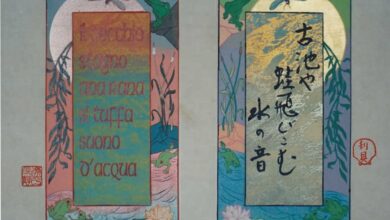 Il vecchio
stagno
una rana
si tuffa
suono
d'acqua
古池や
蛙飛びこむ
水の音